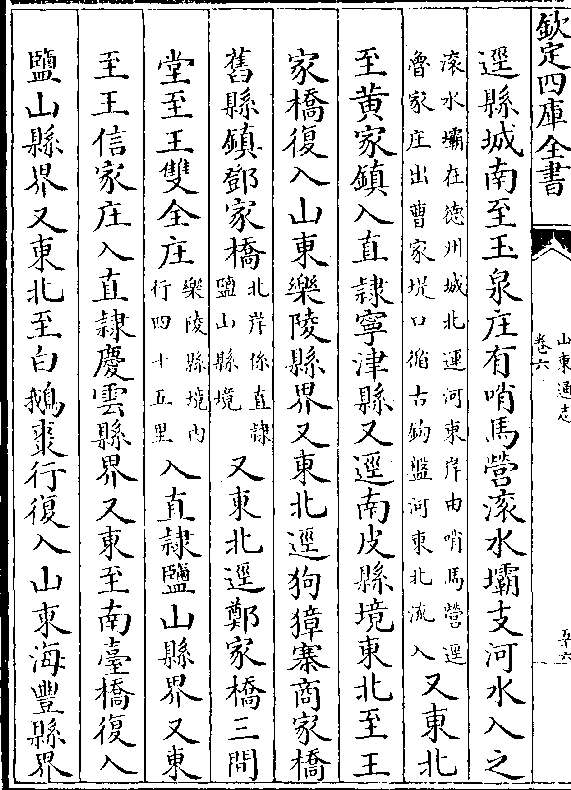 欽定四庫全書
山東通志
卷六
五十六
逕縣城南至玉泉庄有哨馬營滚水壩支河水入之
滚水壩在德州城北運河東岸由哨馬營逕
魯家庄出曹家堤口循古鉤盤河東北流入
又東北
至黄家鎮入直隷寧津縣又逕南皮縣境東北至王
家橋復入山東樂陵縣界又東北逕狗獐寨商家橋
舊縣鎮鄧家橋
北岸係直隷
鹽山縣境
又東北逕鄭家橋三間
堂至王雙全庄
樂陵縣境内
行四十五里
入直隷鹽山縣界又東
至王信家庄入直隷慶雲縣界又東至南臺橋復入
鹽山縣界又東北至白鵝棗行復入山東海豐縣界